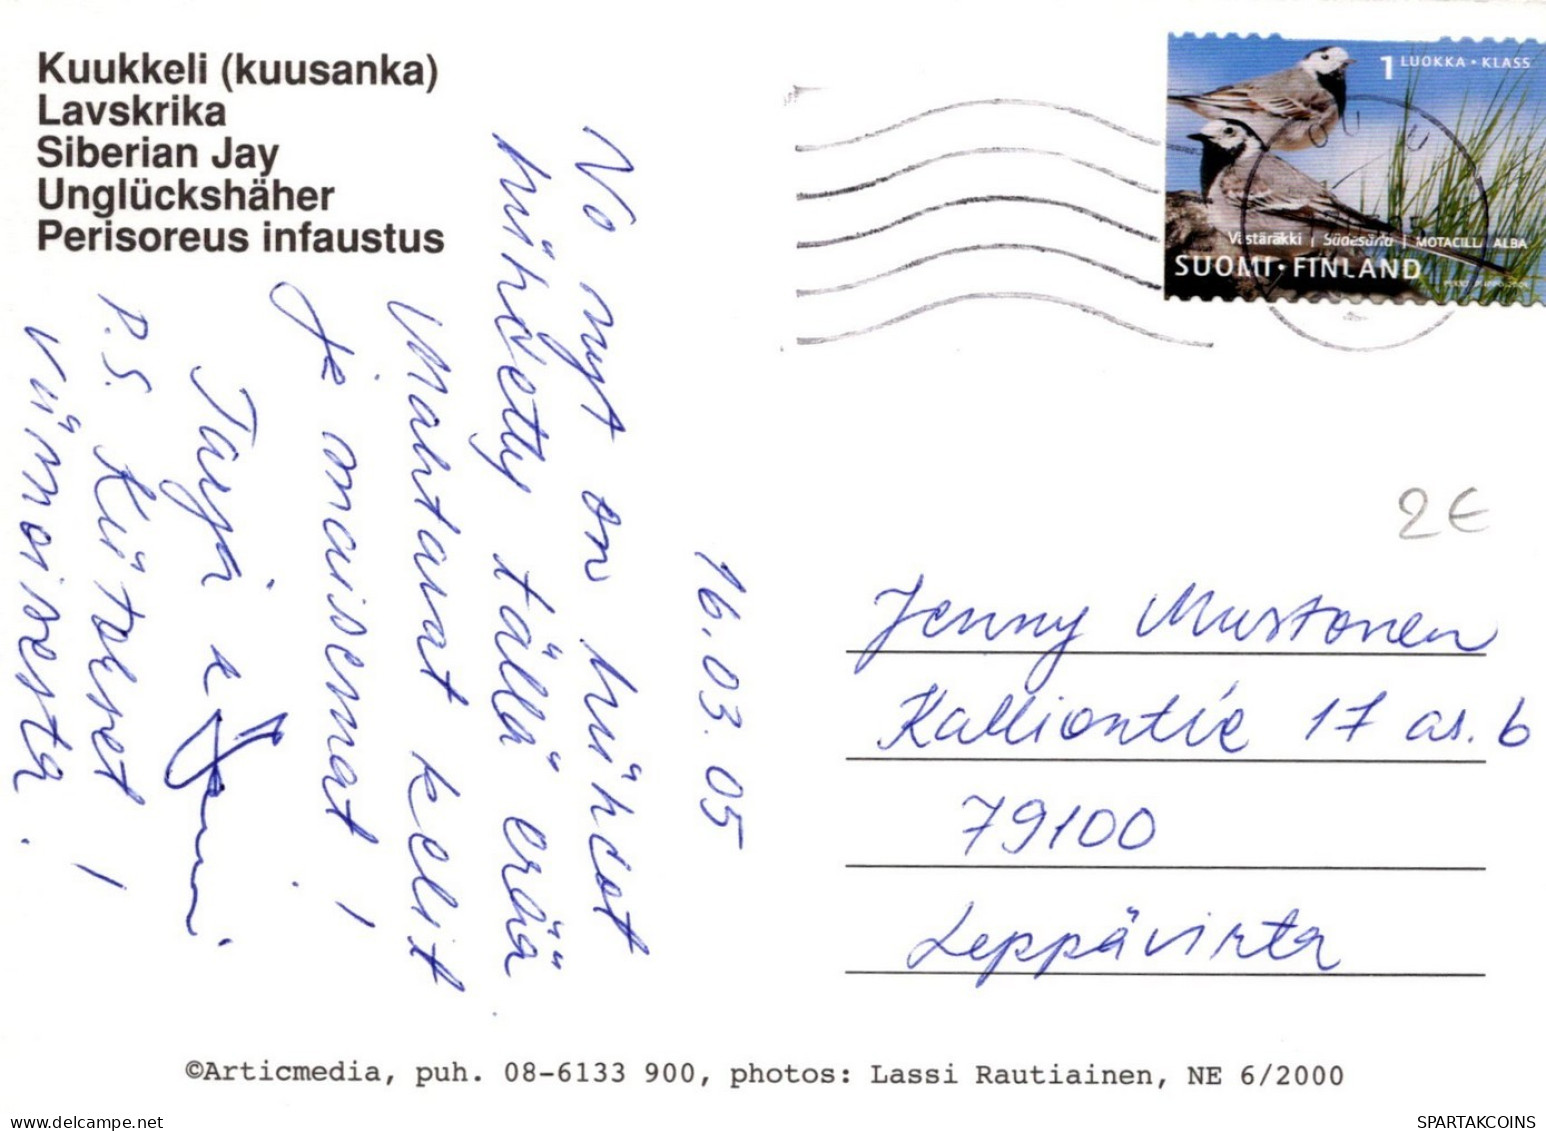 Kuukkeli (kuusanka)
Lavskrika
Siberian Jay
Unglückshäher
Perisoreus infaustus
1 LUOKKA • KLASS
Västäräkki | Sädesärla | MOTACILLA ALBA
SUOMI • FINLAND
16.03.05
No nyt on hiihdot
hiihdetty tällä erää
Mahtavat kelit
ja maisemat!
Tarja &
P.S. Kiitokset
viimoisesta!
2€
Jenny Mustonen
Kalliontie 17 as. 6
79100
Leppävirta
©Articmedia, puh. 08-6133 900, photos: Lassi Rautiainen, NE 6/2000
SPARTAKCOINS